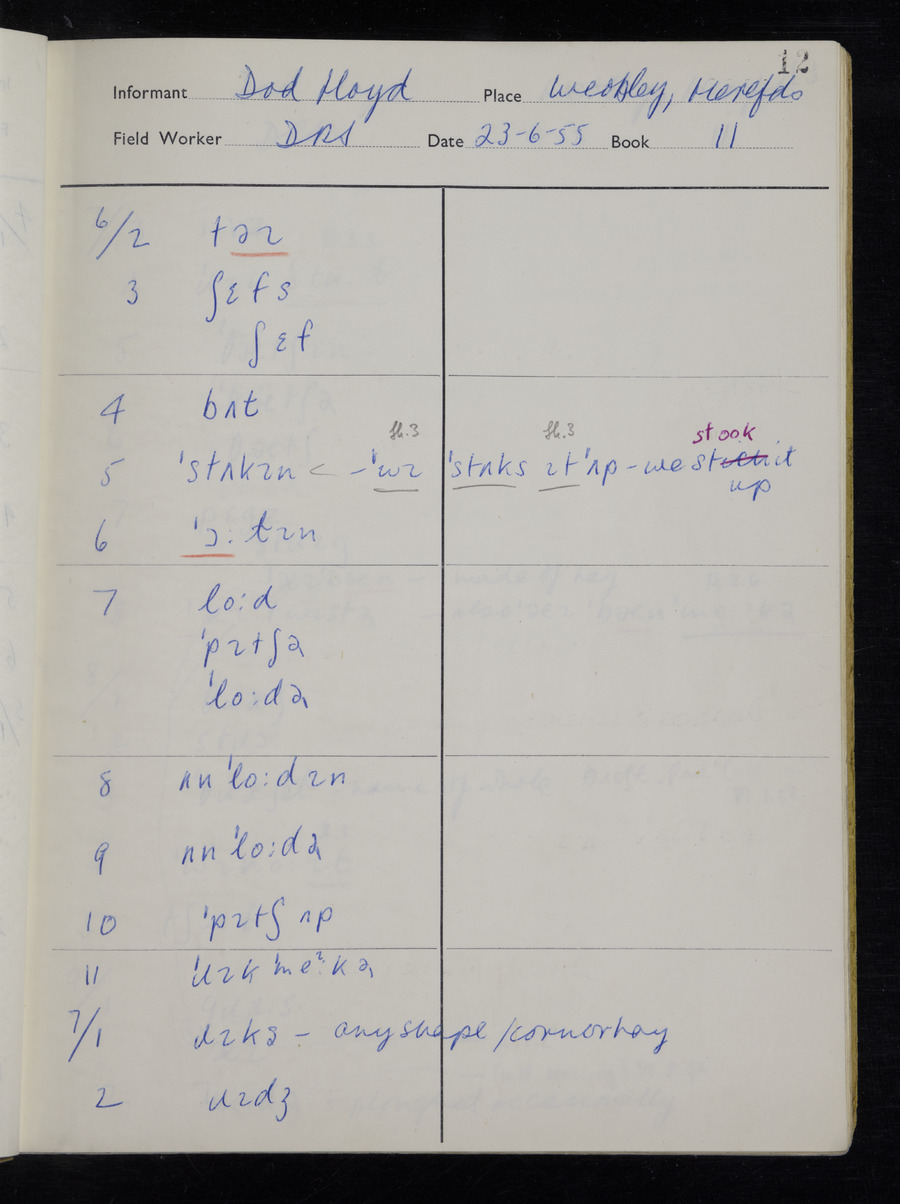 12
Informant Dod Lloyd Place Weobley, Herefds
Field Worker DRS Date 23-6-55 Book 11
6/2 təɪ
3 ʃɛfs
ʃɛf
4 bʌt
sh.3 sh.3 stook
5 ˈstʌkɪn < – ˈwɪ ˈstʌks ɪt ˈʌp – we it
up
6 ˈɔ:tɪn
7 lo:d
ˈpɪtʃə
ˈlo:də
8 ʌnˈlo:dɪn
9 ʌnˈlo:də
10 ˈpɪtʃ ʌp
11 ˈɹɪk ˈmeᶦkə
7/1 ɹɪks – any shape / corn or hay
2 ɹɪdʒ